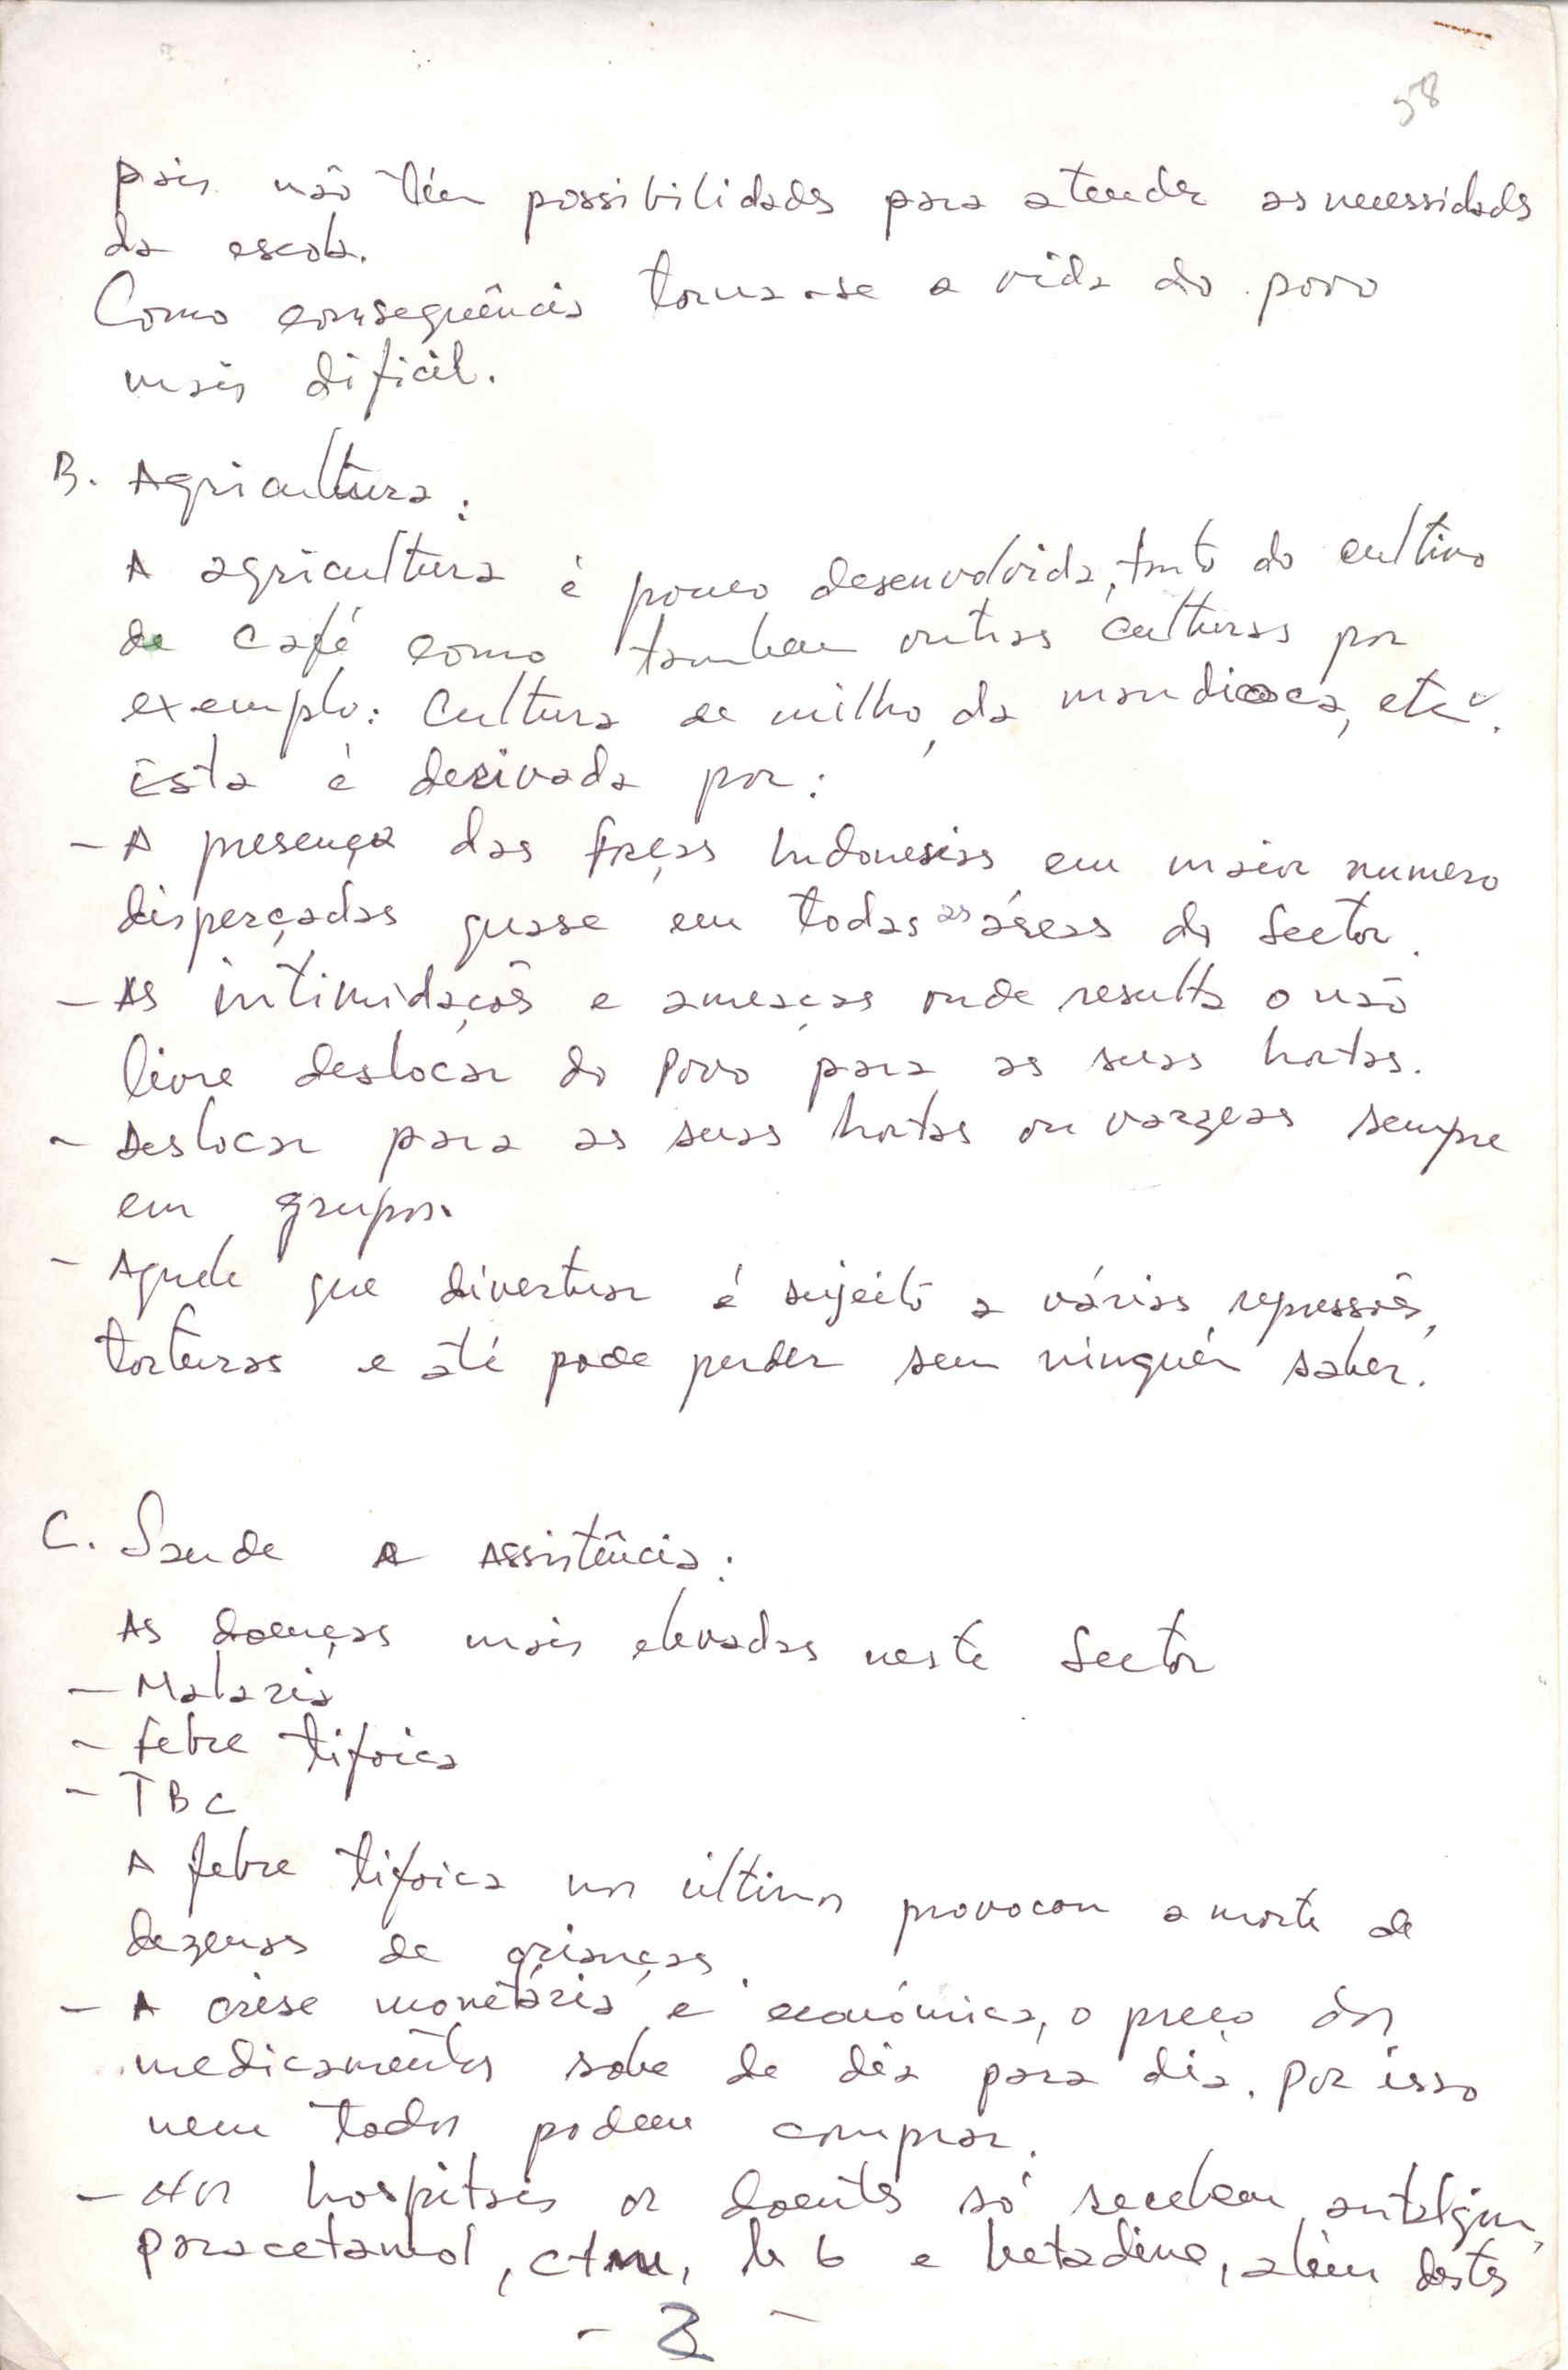 58
pais não têm possibilidades para atender as necessidades
da escola.
Como consequência torna-se a vida do povo
mais dificíl.
B. Agricultura:
A agricultura é pouco desenvolvida, tanto do cultivo
de café como tambem outras culturas por
exemplo: Cultura de milho, da mandioca, etc.
Esta é derivada por:
- A presença das forças Indonesias em maior numero
disperçadas quase em todas as áreas do Sector.
- As intimidaçõs e ameaças onde resulta o não
livre deslocar do povo para as suas hortas.
- Deslocar para as suas hortas ou vargeas sempre
em grupos.
- Aquele que divertur é sujeito a várias repressõs,
torturas e até pode perder sem ninguém saber.
C. Saude e Assistência:
As doenças mais elevadas neste Sector
- Malaria
- febre tifoica
- TBC
A febre tifoica nos últimos provocou a morte de
dezenas de crianças.
- A crise monetária e económica, o preço dos
medicamentos sobe de dia para dia. Por isso
nem todos podem comprar.
- Nos hospitais os doentes só recebem antalgin,
paracetamol, ctm, b 6 e betadine, além destes
- 3 -